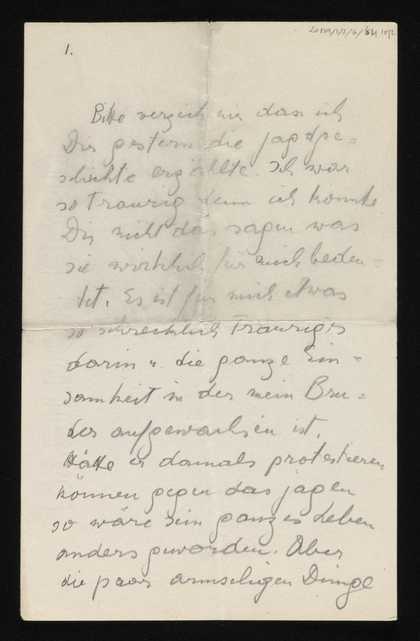 1.
Bitte verzeih mir dass ich
Dir gestern die Jagdge=
schichte erzählte. Ich war
so traurig denn ich konnte
Dir nicht das sagen was
sie wirklich für mich bedeu=
tet. Es ist für mich etwas
so schrecklich Trauriges
darin u. die ganze Ein=
samkeit in der mein Bru=
der aufgewachsen ist.
Hätte er damals protestieren
können gegen das Jagen
so wäre sein ganzes Leben
anders geworden. Aber
die paar armseligen Dinge